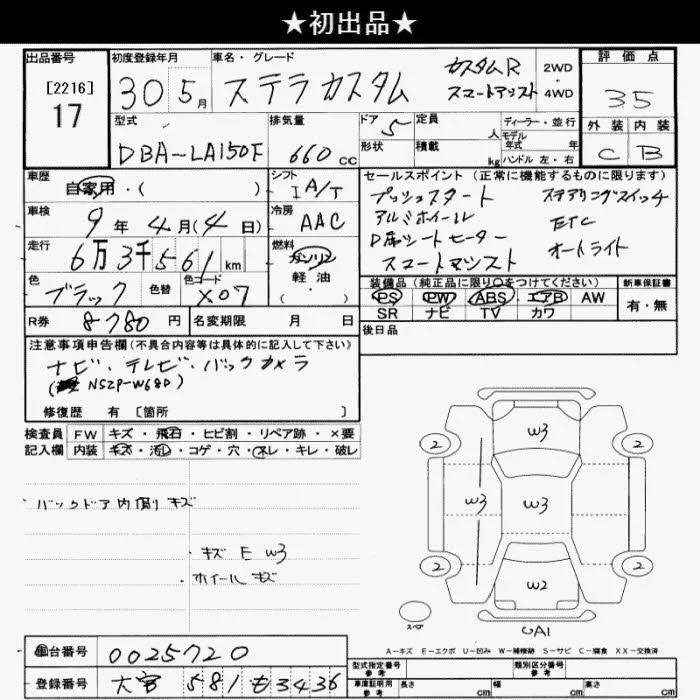 ★初出品★
出品番号
[2216]
17
初度登録年月
30 5月
車名・グレード
ステラカスタム
カスタムR
スマートアシスト
2WD
・
4WD
評価点
35
外装 内装
C B
型式
DBA-LA150F
排気量
660 cc
ドア 5
形状
定員 人
積載 kg
ディーラー・並行
モデル
年式 年
ハンドル 左・右
車歴
自家用・( )
シフト
I A/T
車検
9年 4月(4日)
冷房
AAC
走行
6万3千561km
燃料
ガソリン
軽油
( ・ )
色
ブラック
色替
色コード
X07
R券 8780円
名変期限 月 日
セールスポイント(正常に機能するものに限ります)
プッシュスタート ステアリングスイッチ
アルミホイール ETC
D席シートヒーター オートライト
スマートアシスト
装備品(純正品に限り○をつけてください)
PS PW ABS エアB AW
SR ナビ TV カワ
新車保証書
有・無
後日品
注意事項申告欄(不具合内容等は具体的に記入して下さい)
ナビ・テレビ・バックカメラ
(NSZP-W68D)
修復歴 有 [箇所 ]
検査員 FW キズ・飛石・ヒビ割・リペア跡・×要
記入欄 内装 キズ・汚れ・コゲ・穴・スレ・キレ・破レ
・バックドア内側キズ
・キズ E W3
・ホイールキズ
2 W3 2
W3 W3
2 W2 2
スペア
UA1
A-キズ E-エクボ U-凹み W-補修跡 S-サビ C-腐食 XX-交換済
車台番号 0025720
登録番号 大宮 581 も 3436
型式指定番号
参考
類別区分番号
参考
車庫証明用
参考
長さ cm 幅 cm 高さ cm